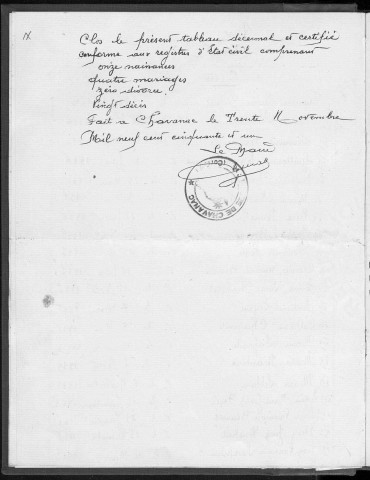 IX.
Clos le présent tableau décennal et certifié
conforme aux registres d'Etat civil comprenant
onze naissances
quatre mariages
zéro divorce.
Vingt décès
Fait à Chavanac le Trente Novembre
Mil neuf cent cinquante et un
Le Maire
DE CHAVANAC